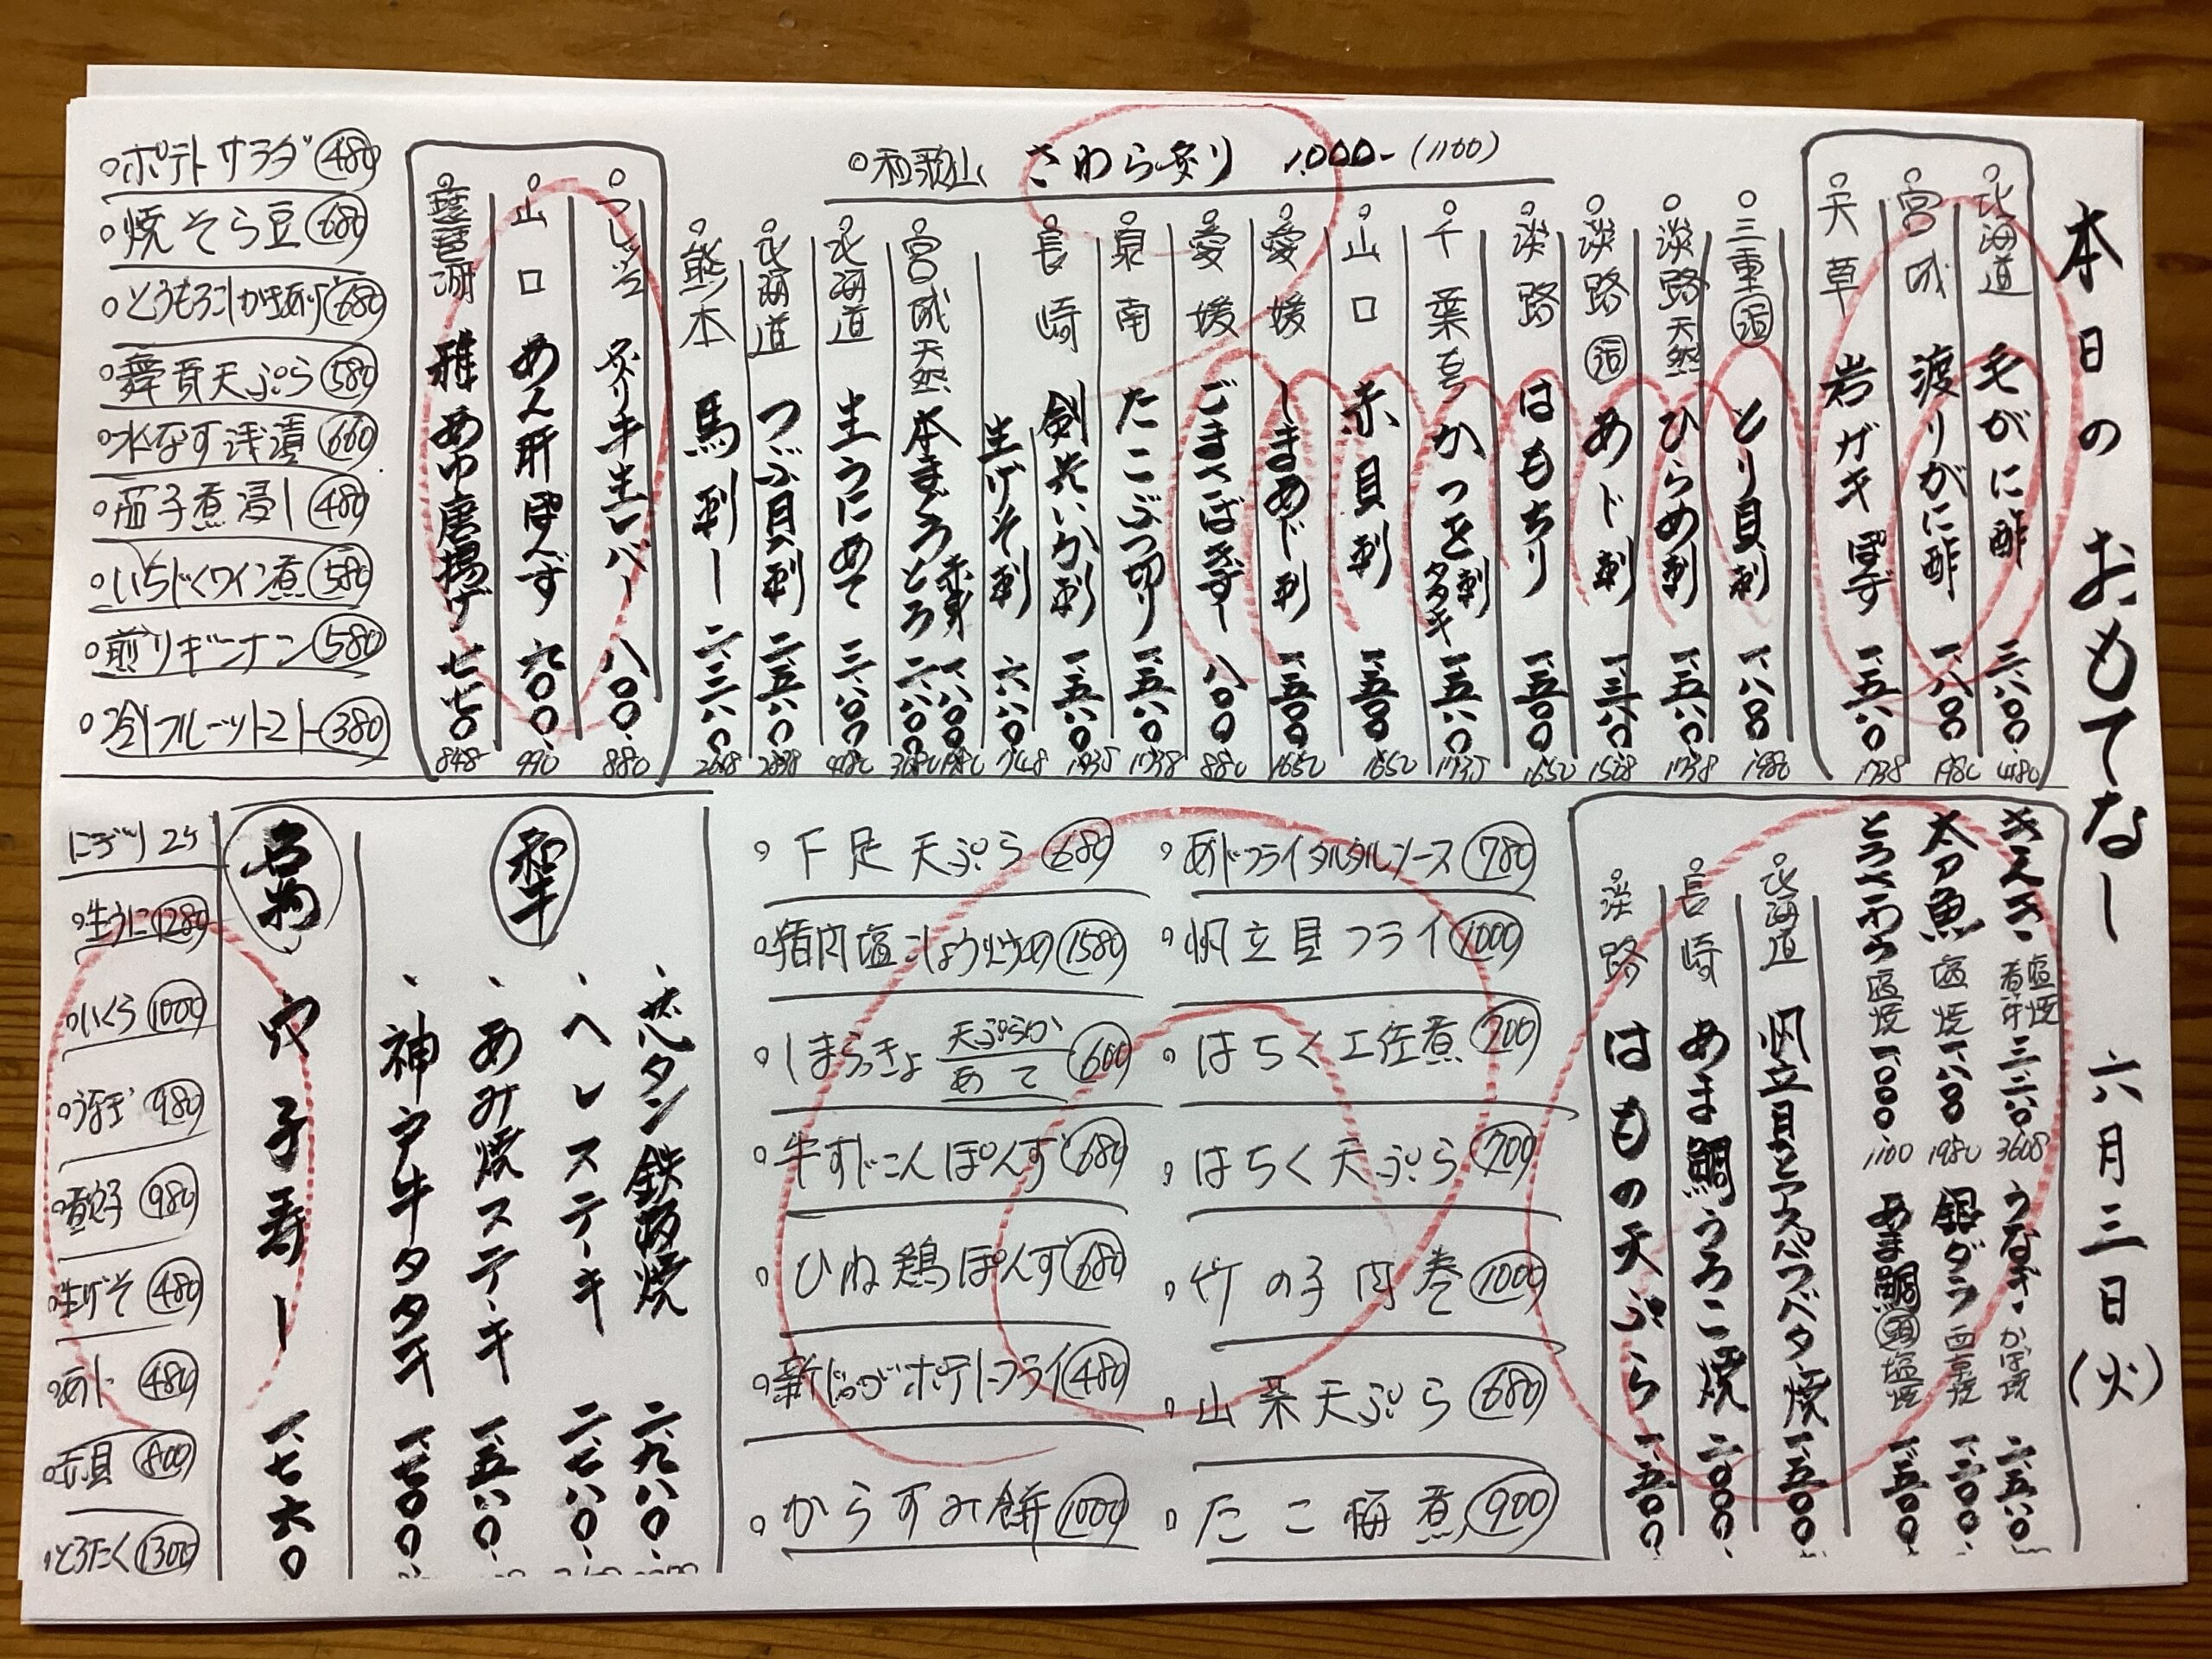 本日のおもてなし 六月三日(火)
北海道 毛がに酢 三、八〇〇 4180
宮城 渡りがに酢 一、八〇〇 1980
天草 岩ガキぽず 一、五八〇 1738
和歌山 さわら炙り 1,000-(1100)
三重 活 とり貝刺 一、八〇〇 1980
淡路 天然 ひらめ刺 一、五八〇 1738
淡路 活 あじ刺 一、三八〇 1518
淡路 はもちり 一、五〇〇 1650
千葉 かつを刺 タタキ 一、五八〇
山口 赤貝刺 一、五〇〇 1650
愛媛 しまあじ刺 一、五〇〇 1650
愛媛 ごまさばきずし 八〇〇 880
泉南 たこぶつ切り 一、五八〇 1738
長崎 剣先いか刺 一、五八〇
生げそ刺 六八〇 748
宮城 天然 本まぐろ 赤身 一、八〇〇 1980 とろ 二、八〇〇
北海道 生うにあて 三、八〇〇 4180
北海道 つぶ貝刺 二、五八〇
熊本 馬刺し 二、三八〇 2618
炙り牛生レバー 八〇〇 880
山口 あん肝ぽんず 九〇〇 990
琵琶湖 稚あゆ唐揚げ 七七〇 848
ポテトサラダ 480
焼そら豆 680
とうもろこしかきあげ 680
舞茸天ぷら 580
水なす浅漬 660
茄子煮浸し 480
いちじくワイン煮 580
煎りギンナン 580
冷しフルーツトマト 380
きんき 塩焼 煮付 三、二八〇 3608
うなぎ かば焼 二、五八〇
太刀魚 塩焼 一、八〇〇 1980
銀ダラ 西京焼 一、二〇〇
とろさわら 塩焼 一、〇〇〇 1100
あま鯛 頭 塩焼 一、五〇〇
北海道 帆立貝とアスパラバター焼 一、五〇〇
長崎 あま鯛うろこ焼 二、〇〇〇
淡路 はもの天ぷら 一、五〇〇
あじフライタルタルソース 780
帆立貝フライ 1000
はちく土佐煮 700
はちく天ぷら 700
竹の子肉巻 1000
山菜天ぷら 680
たこ梅煮 900
下足天ぷら 680
猪肉塩こしょう炒め 1580
しまらっきょ 天ぷらか あて 600
牛すじこんぽんず 680
ひね鶏ぽんず 680
新じゃがポテトフライ 480
からすみ餅 1000
和牛
芯タン鉄板焼 二、九八〇
ヘレステーキ 二、七八〇
あみ焼ステーキ 一、五八〇
神戸牛タタキ 一、七〇〇
名物
穴子寿し 一、七六〇
にぎり2ケ
生うに 1280
いくら 1000
うなぎ 980
煮穴子 980
生げそ 480
あじ 480
赤貝 800
とろたく 1300